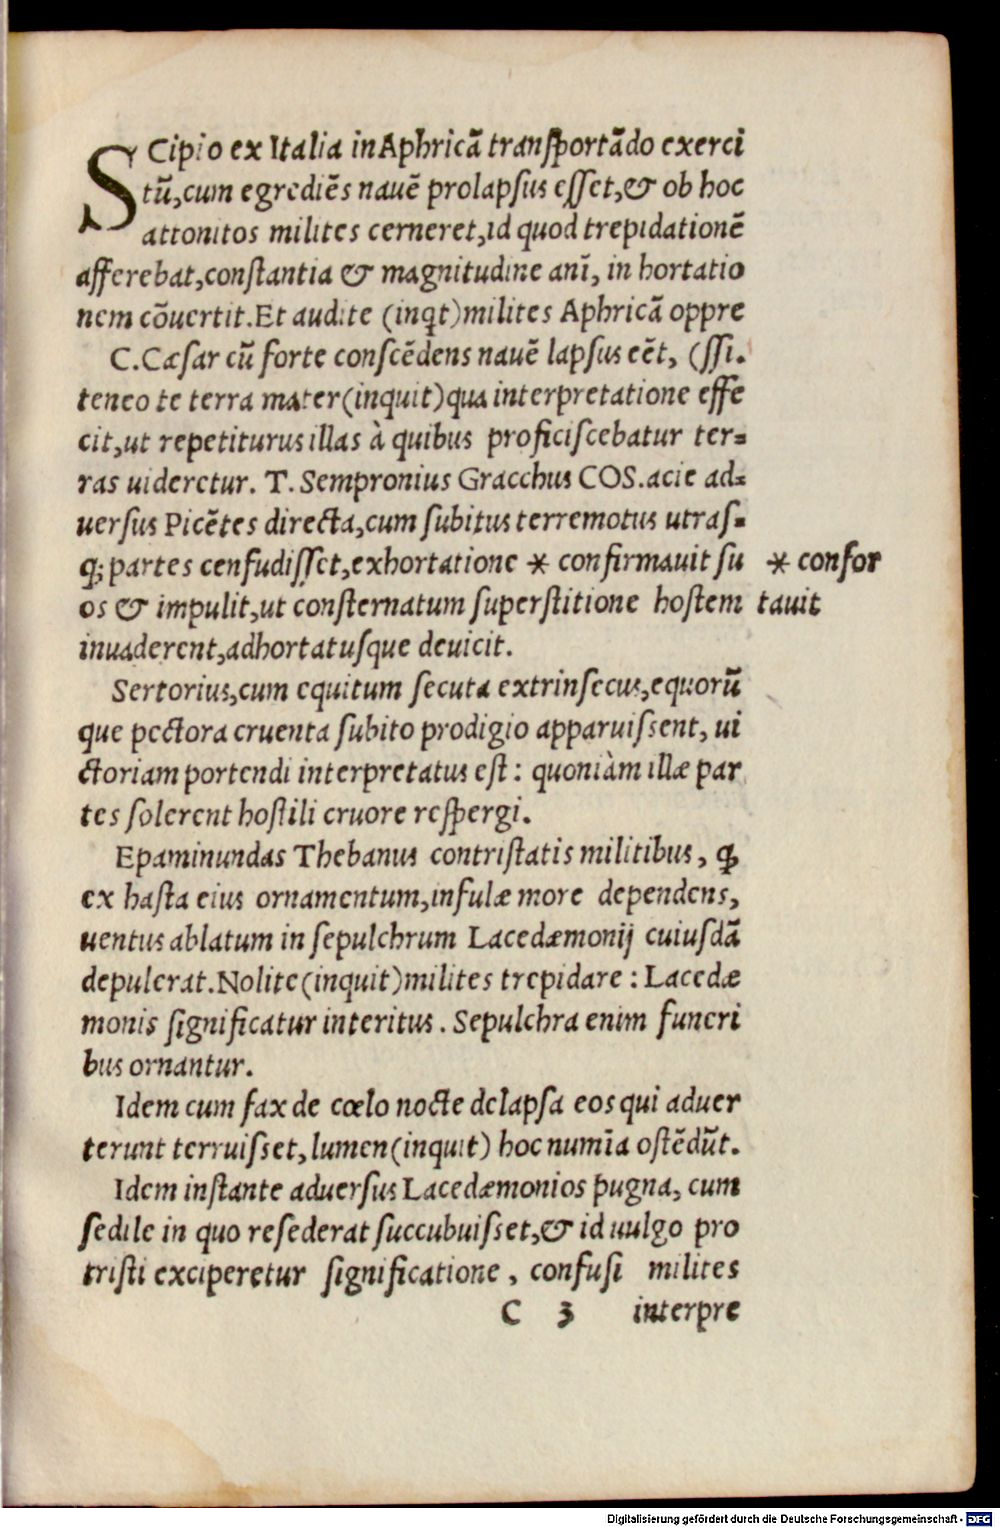 SCipio ex Italia in Aphricā transportādo exerci
tū,cum egrediēs nauē prolapsus esset,& ob hoc
attonitos milites cerneret,id quod trepidationē
afferebat,constantia & magnitudine anī, in hortatio
nem cōuertit.Et audite (inqt)milites Aphricā oppre
C.Cæsar cū forte conscēdens nauē lapsus eēt, (ssi.
teneo te terra mater(inquit)qua interpretatione effe
cit,ut repetiturus illas à quibus proficiscebatur ter=
ras uideretur. T. Sempronius Gracchus COS.acie ad=
uersus Picētes directa,cum subitus terremotus utras=
q; partes cenfudisset,exhortatione * confirmauit su * confor
os & impulit,ut consternatum superstitione hostem tauit
inuaderent,adhortatusque deuicit.
Sertorius,cum equitum secuta extrinsecus,equorū
que pectora cruenta subito prodigio apparuissent, ui
ctoriam portendi interpretatus est: quoniàm illæ par
tes solerent hostili cruore respergi.
Epaminundas Thebanus contristatis militibus, ꝙ
ex hasta eius ornamentum,infulæ more dependens,
uentus ablatum in sepulchrum Lacedæmonij cuiusdā
depulerat.Nolite(inquit)milites trepidare: Lacedæ
monis significatur interitus. Sepulchra enim funeri
bus ornantur.
Idem cum fax de cœlo nocte delapsa eos qui aduer
terunt terruisset,lumen(inquit) hoc numīa ostēdūt.
Idem instante aduersus Lacedæmonios pugna, cum
sedile in quo resederat succubuisset,& id uulgo pro
tristi exciperetur significatione, confusi milites
C 3 interpre
Digitalisierung gefördert durch die Deutsche Forschungsgemeinschaft - DFG